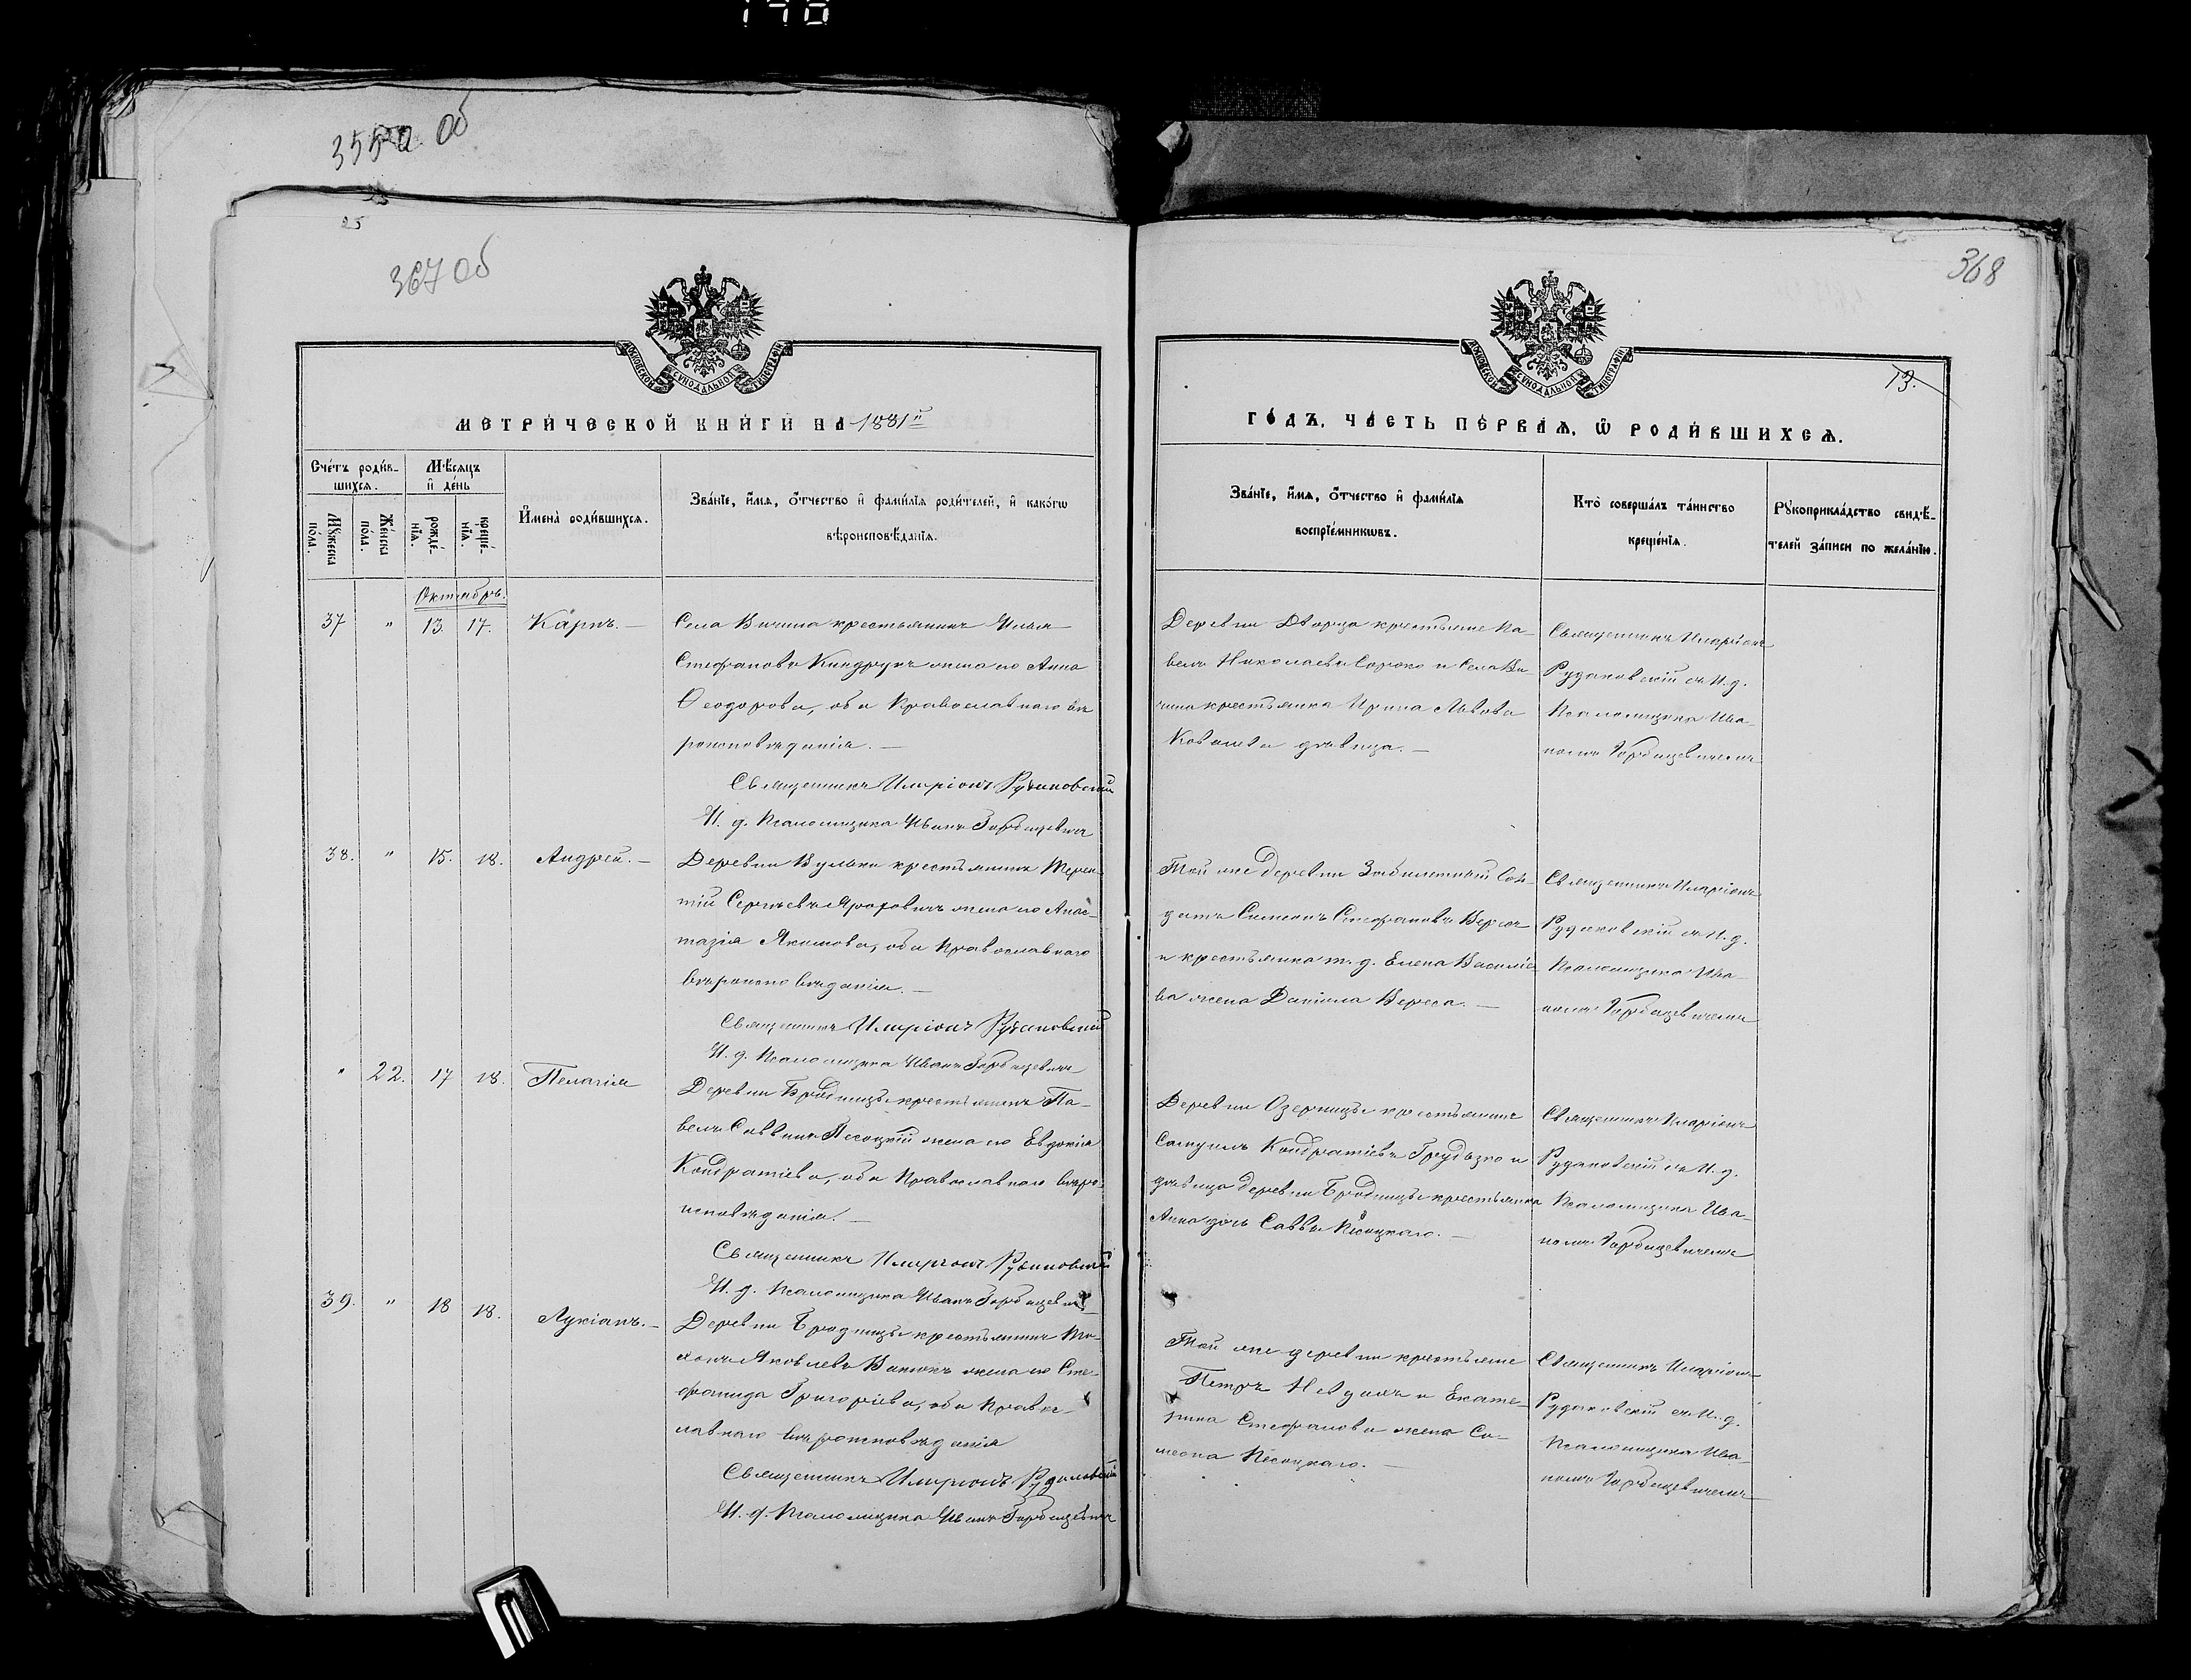 355 Об
25
367 Об
368
МОСКОВСКОЙ СУНОДАЛЬНОЙ ТИПОГРАФІИ
МОСКОВСКОЙ СУНОДАЛЬНОЙ ТИПОГРАФІИ
13.
МЕТРИЧЕСКОЙ КНИГИ НА 1881й
ГОДЪ, ЧАСТЬ ПЕРВАЯ, Ѿ РОДИВШИХСЯ.
Счетъ родив-
шихся.
Мѣсяцъ
и день
Мужеска
пола.
Женска
пола.
рожде-
нія.
креще-
нія.
Имена родившихся.
Званіе, имя, отчество и фамилія родителей, и какогѡ
вѣроисповѣданія.
Званіе, имя, отчество и фамилія
воспріемникѡвъ.
Кто совершалъ таинство
крещенія.
Рукоприкладство свидѣ-
телей записи по желанію.
Октябрь.
37 " 13. 17. Карпъ. —
Села Вичина крестьянинъ Илья
Стефановъ Киндрукъ жена его Анна
Ѳеодорова, оба Православнаго вѣ
роисповѣданія. —
Священникъ Иларіонъ Рудаковскій
И. д. Псаломщика Иванъ Горбацевичъ
Деревни Дворца крестьяне Па-
велъ Николаевъ Сороко и Села Ви-
чина крестьянка Ирина Львова
Ковалева дѣвица. —
Священникъ Иларіонъ
Рудаковскій съ И. д.
Псаломщика Ива-
номъ Горбацевичемъ
38. " 15. 18. Андрей. —
Деревни Вульки крестьянинъ Терен-
тій Сергѣевъ Ярофовичъ жена его Анас-
тазія Якимова, оба Православнаго
вѣроисповѣданія. —
Священникъ Иларіонъ Рудаковскій
И. д. Псаломщика Иванъ Горбацевичъ
Той же деревни Забилетный Сол-
датъ Симеонъ Стефановъ Вересъ
и крестьянка т. д. Елена Василіе
ва жена Даніила Вереса. —
Священникъ Иларіонъ
Рудаковскій съ И. д.
Псаломщика Ива-
номъ Горбацевичемъ
" 22. 17 18. Пелагія
Деревни Бродницы крестьянинъ Па-
велъ Саввинъ Песоцкій жена его Евдокія
Кондратіева, оба Православнаго вѣро-
исповѣданія. —
Священникъ Иларіонъ Рудаковскій
И. д. Псаломщика Иванъ Горбацевичъ
Деревни Озерницы крестьянинъ
Самуилъ Кондратіевъ Грудько и
дѣвица деревни Бродницы крестьянка
Анна дочь Саввы Песоцкаго. —
Священникъ Иларіонъ
Рудаковскій съ И. д.
Псаломщика Ива-
номъ Горбацевичемъ
39. " 18 18. Лукіанъ. —
Деревни Бродницы крестьянинъ
Яковлевъ жена его Сте-
фанида Григоріева, оба Правос-
лавнаго вѣроисповѣданія
Священникъ Иларіонъ Рудаковскій
И. д. Псаломщика Иванъ Горбацевичъ
Той же деревни крестьяне
Петръ и Екате-
рина Стефанова жена Си-
меона Песоцкаго. —
Священникъ Иларіонъ
Рудаковскій съ И. д.
Псаломщика Ива-
номъ Горбацевичемъ